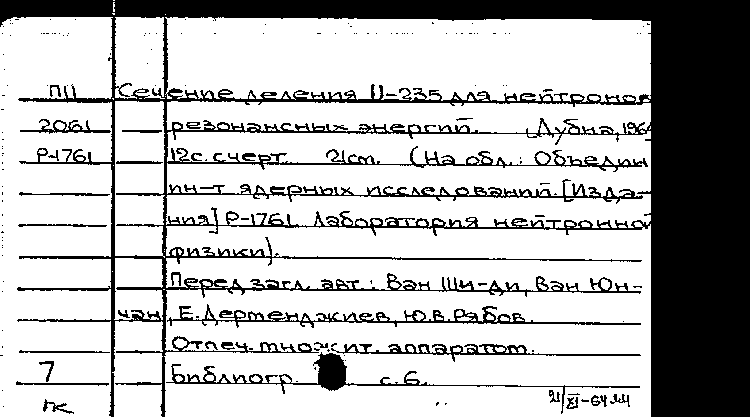 П11 Сечение деления U-235 для нейтронов
2061 резонансных энергий. Дубна, 1964
Р-1761 12с. с черт. 21см. (На обл.: Объедин
ин-т ядерных исследований. [Изда-
ния] Р-1761 Лаборатория нейтронной
физики).
Перед загл. авт.: Ван Ши-ди, Ван Юн-
чан, Е. Дерменджиев, Ю.В. Рябов.
Отпеч. множит. аппаратом.
7 Библиогр. с. 6.
пк 21/XI-64